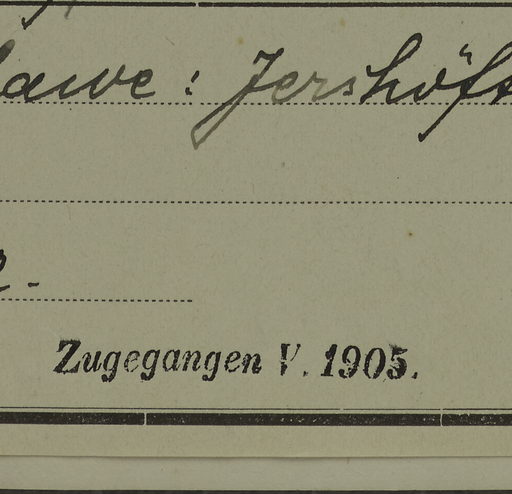 lawe: Jershöft
Zugegangen V. 1905.